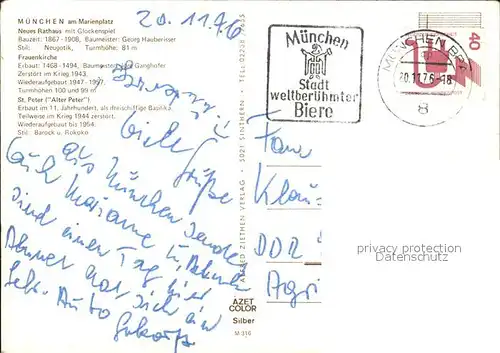 MÜNCHEN am Marienplatz
Neues Rathaus mit Glockenspiel
Bauzeit: 1867-1908, Baumeister: Georg Hauberisser
Stil: Neugotik, Turmhöhe: 81 m
Frauenkirche
Erbaut: 1468-1494, Baumeister: Ganghofer
Zerstört im Krieg 1943.
Wiederaufgebaut 1947-1957.
Turmhöhen 100 und 99 m
St. Peter ("Alter Peter")
Erbaut im 11. Jahrhundert, als dreischiffige Basilika
Teilweise im Krieg 1944 zerstört.
Wiederaufgebaut bis 1954.
Stil: Barock u. Rokoko
20.11.76
viele Grüße
aus München senden
Euch Marianne u.
sind einen Tag hier
hat sich ein
Auto gekauft
ALFRED ZIETHEN VERLAG · 5021 SINTHERN
AZET
COLOR
Silber
M 316
München
Stadt
weltberühmter
Biere
MÜNCHEN
20.11.76-18
8
40
Fam
Klaus
DDR
Agri
privacy protection
Datenschutz